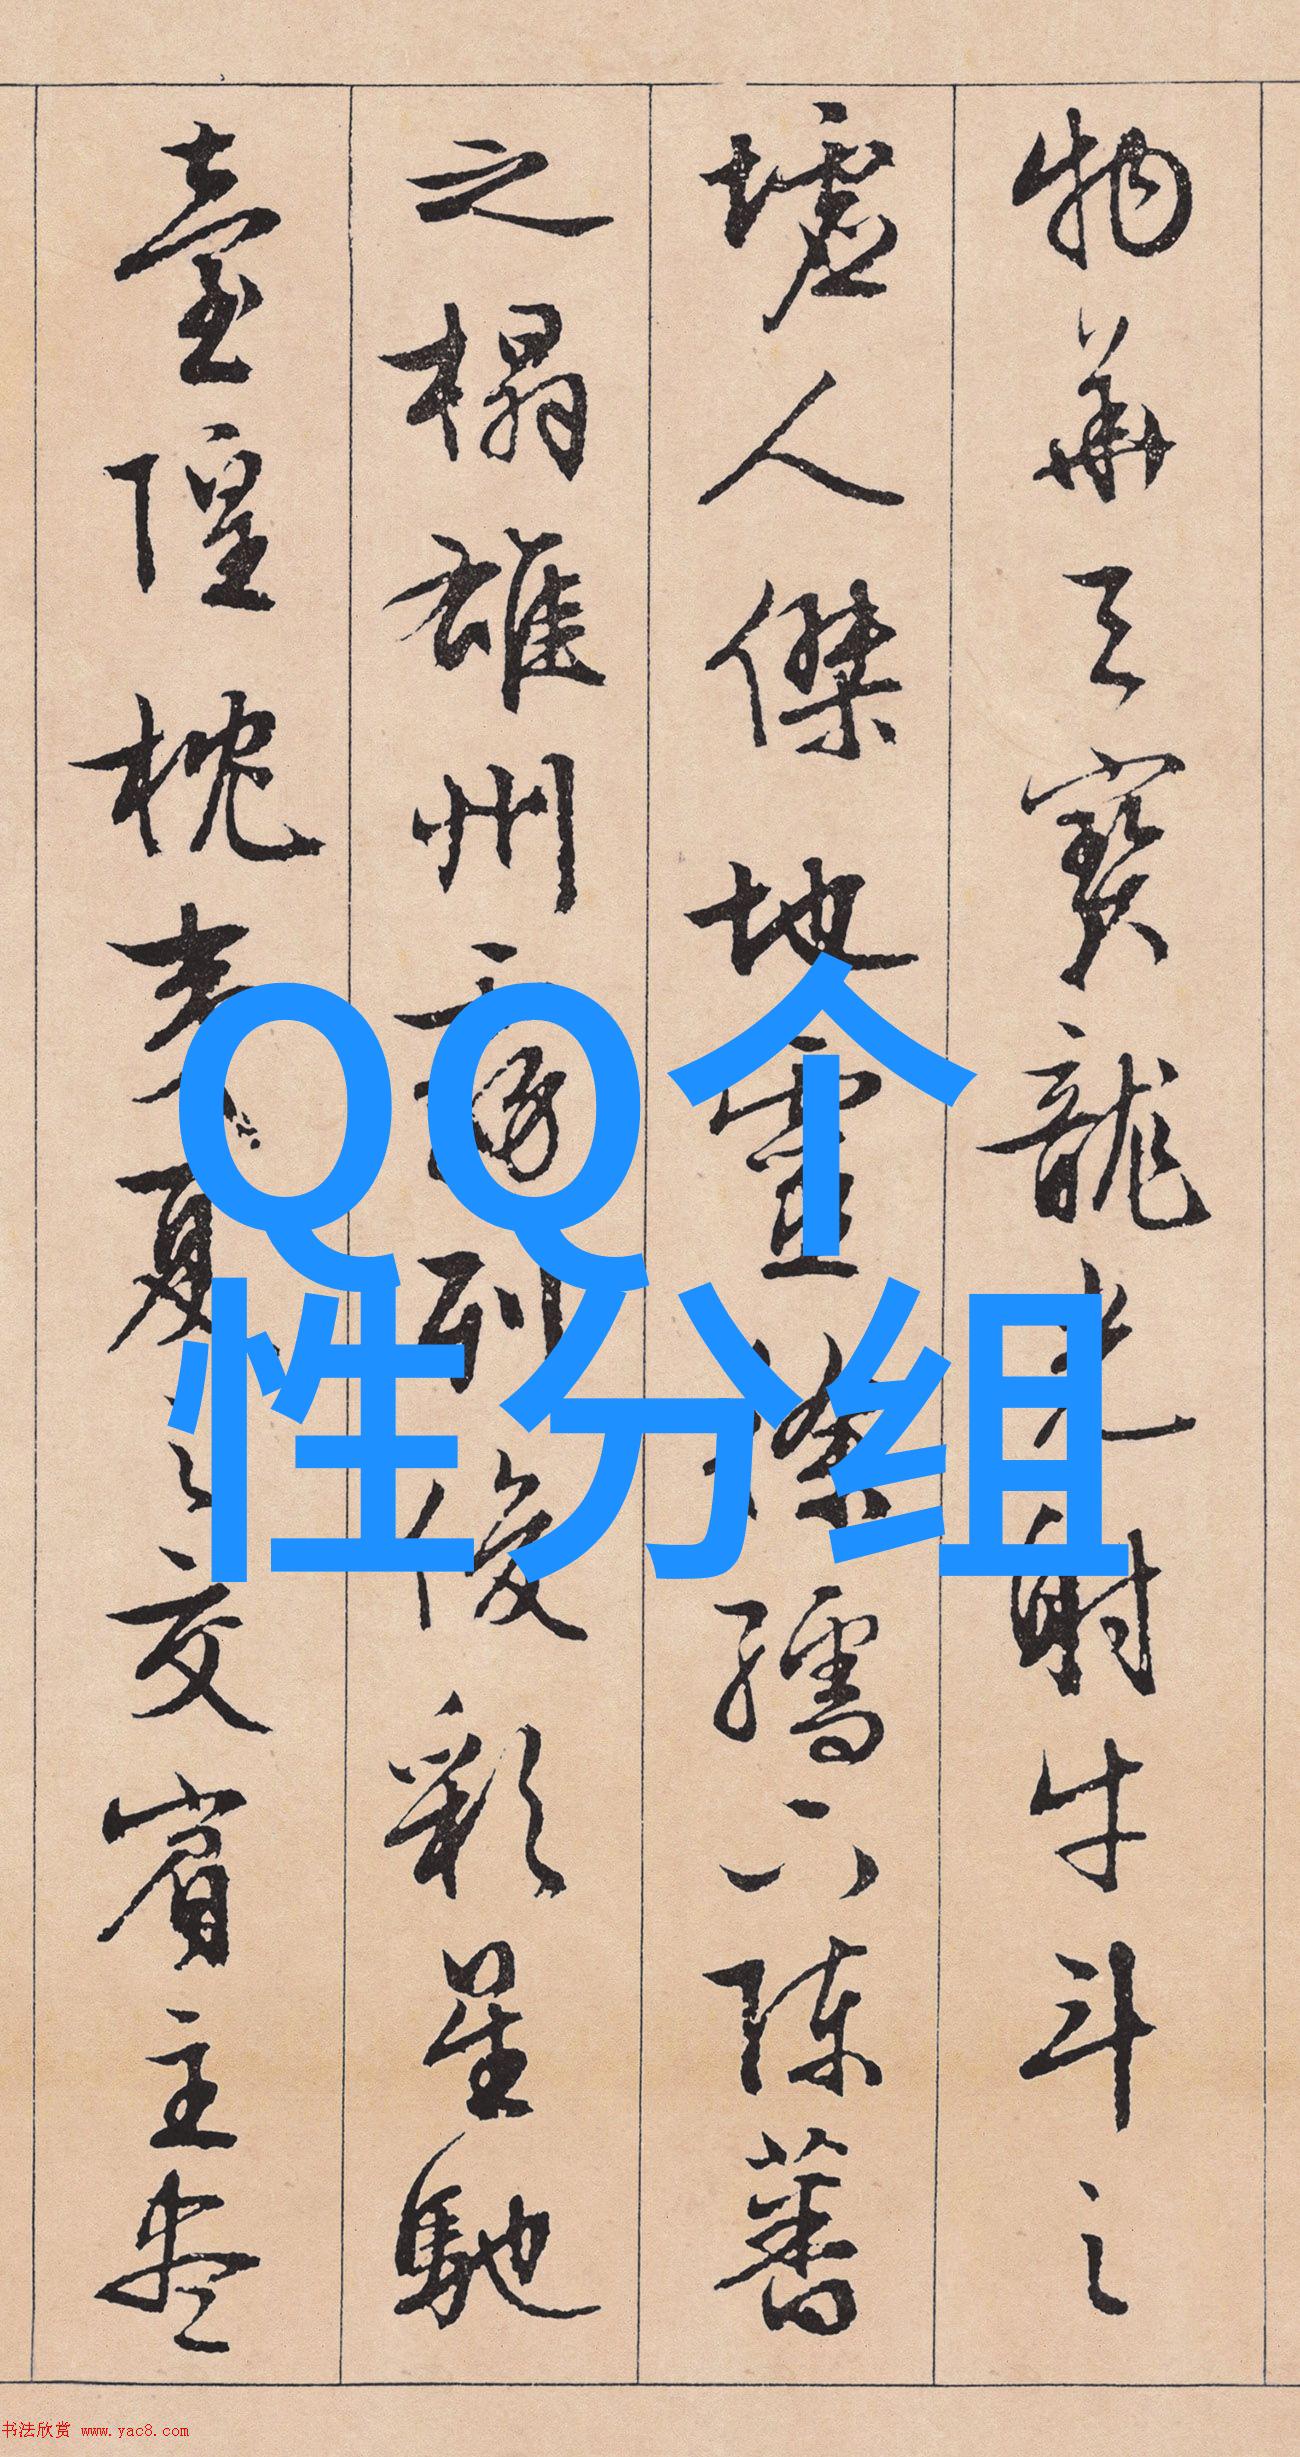 物華天寶龍光射牛斗之
墟人傑地靈徐孺下陳蕃
之榻雄州霧列俊彩星馳
臺隍枕夷夏之交賓主盡
QQ个
性分组
书法欣赏 www.yac8.com